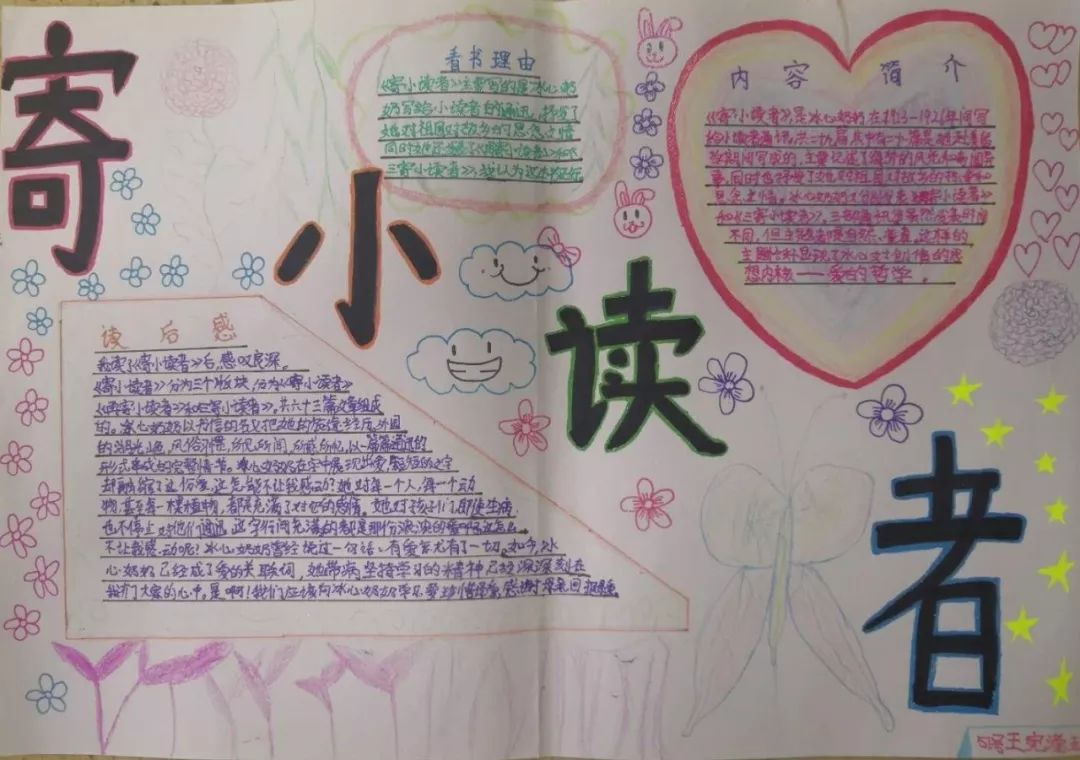 寄小读者
看书理由
《寄小读者》主要写的是冰心奶
奶写给小读者的通讯,抒发了
她对祖国对故乡的思念之情
同时她还
三寄小读者》,我认为这本
内容简介
《寄小读者》,是冰心奶奶在1923—1926年间写
给小读者通讯,共二十九篇,其中有二十一篇是
期间写成的,主要记述了
事,同时也抒发了她对祖国对故乡的热爱和
思念之情。冰心奶奶又分别发表《再寄小读者》
和《三寄小读者》,三部通讯集虽然发表时间
不同,但主题
主题
想内核——爱的哲学。
读后感
我读了《寄小读者》后,感叹良深。
《寄小读者》分为三个版块,分为《寄小读者》
《再寄小读者》和《三寄小读者》。共六十三篇文章组成
的。冰心奶奶以书信的名义把她的旅途经历,外国
的湖光山色,风俗习惯,所见所闻,所感所忆,以一篇篇通讯的
形式串成的完整情节。冰心奶奶在字中展现出爱,短短的文字
却融缩了这份爱,这怎能不让我感动?她对每一个人,每一个动
物,甚至每一棵植物,都是充满了对它的感情。她对孩子们,即使生病
也不停止对他们通迅,这字行间充满的都是那份浓浓的爱啊,这怎么
不让我感动呢!冰心奶奶曾经说过一句话:有爱就有了一切。如今,冰
心奶奶已经成了爱的关联词,她带病坚持学习的精神已经深深刻在
我们大家的心中。是啊!我们应该向冰心奶奶学习